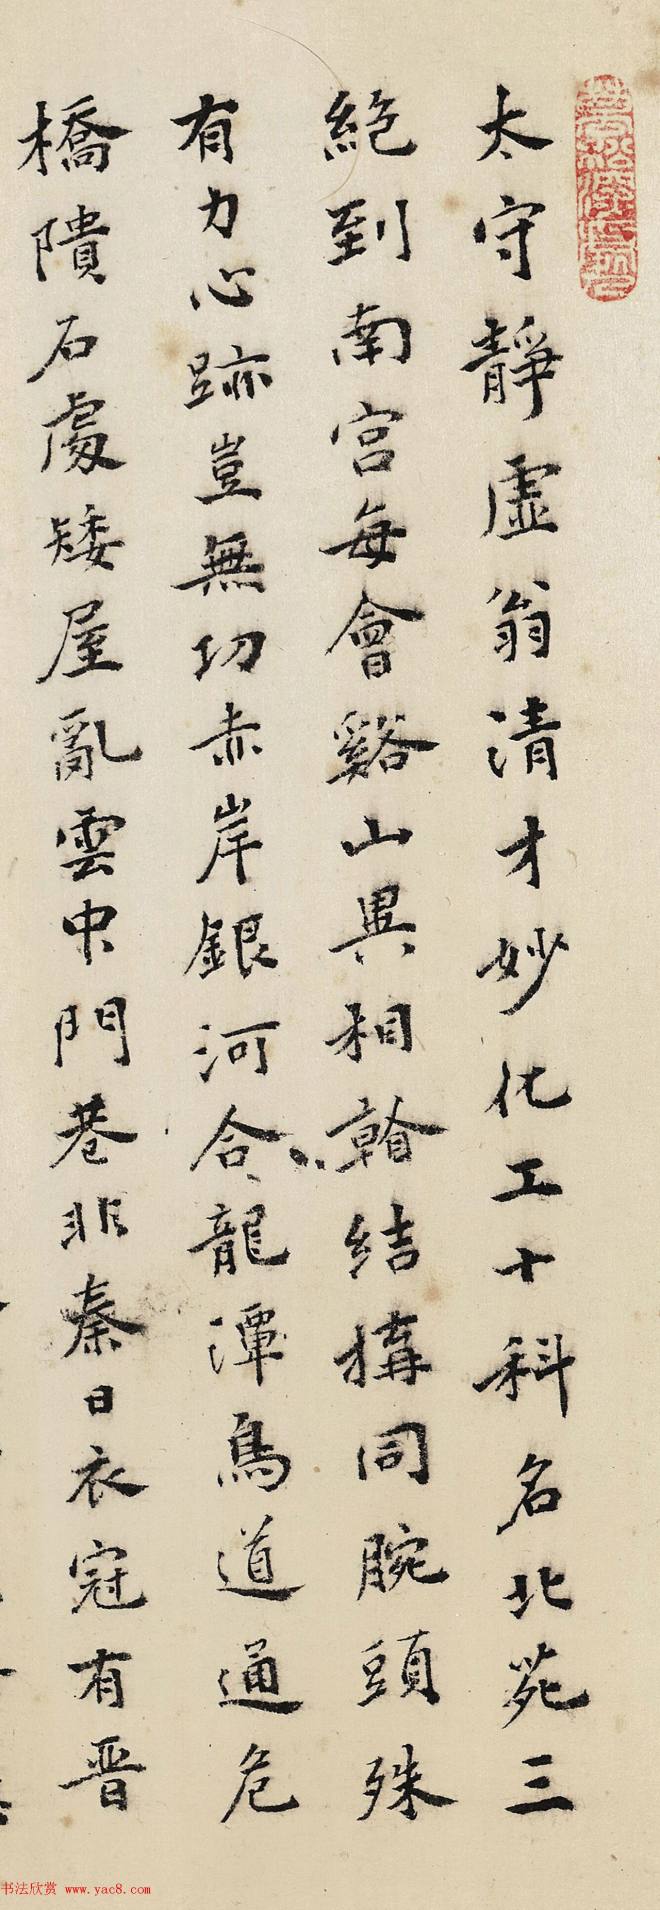 太守靜虛翁清才妙化工十科名北苑三
絶到南宮每會谿山異相贈結構同腕頭殊
有力心跡豈無功赤岸銀河合龍潭鳥道通危
橋隤石處矮屋亂雲中門巷非秦日衣冠有晋
书法欣赏 www.yac8.com